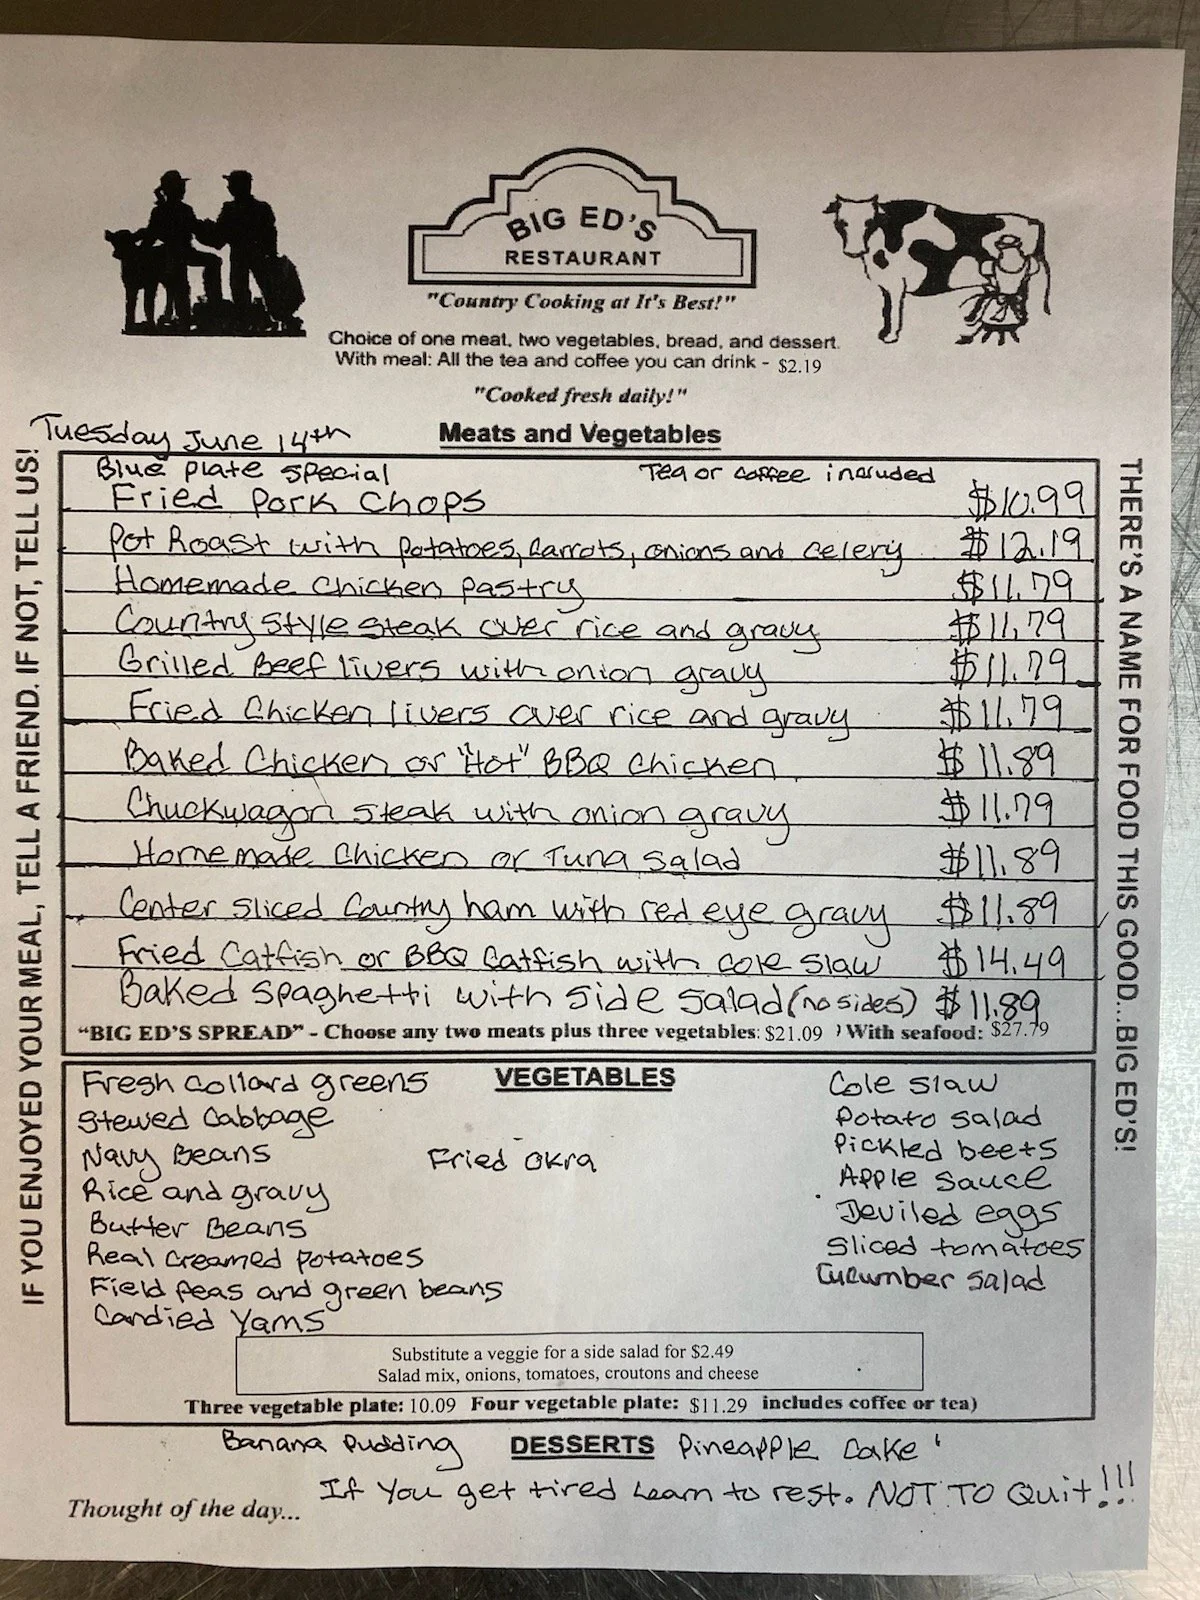 BIG ED'S
RESTAURANT
"Country Cooking at It's Best!"
Choice of one meat, two vegetables, bread, and dessert.
With meal: All the tea and coffee you can drink - $2.19
"Cooked fresh daily!"
Tuesday June 14th
Meats and Vegetables
Blue plate special Tea or coffee included
Fried Pork Chops $10.99
Pot Roast with potatoes, carrots, onions and celery $12.19
Homemade Chicken pastry $11.79
Country Style steak over rice and gravy $11.79
Grilled Beef livers with onion gravy $11.79
Fried Chicken livers over rice and gravy $11.79
Baked Chicken or "Hot" BBQ Chicken $11.89
Chuckwagon steak with onion gravy $11.79
Homemade Chicken or Tuna salad $11.89
Center sliced Country ham with red eye gravy $11.89
Fried Catfish or BBQ Catfish with cole slaw $14.49
Baked spaghetti with side salad (no sides) $11.89
"BIG ED'S SPREAD" - Choose any two meats plus three vegetables: $21.09 ) With seafood: $27.79
VEGETABLES
Fresh collard greens
Stewed Cabbage
Navy Beans
Rice and gravy
Butter Beans
Real creamed potatoes
Field peas and green beans
Candied Yams
Fried okra
Cole slaw
Potato salad
Pickled beets
Apple sauce
Deviled eggs
Sliced tomatoes
Cucumber salad
Substitute a veggie for a side salad for $2.49
Salad mix, onions, tomatoes, croutons and cheese
Three vegetable plate: 10.09 Four vegetable plate: $11.29 includes coffee or tea)
Banana Pudding DESSERTS Pineapple Cake
Thought of the day... If you get tired learn to rest. NOT TO Quit!!!
IF YOU ENJOYED YOUR MEAL, TELL A FRIEND. IF NOT, TELL US!
THERE'S A NAME FOR FOOD THIS GOOD...BIG ED'S!